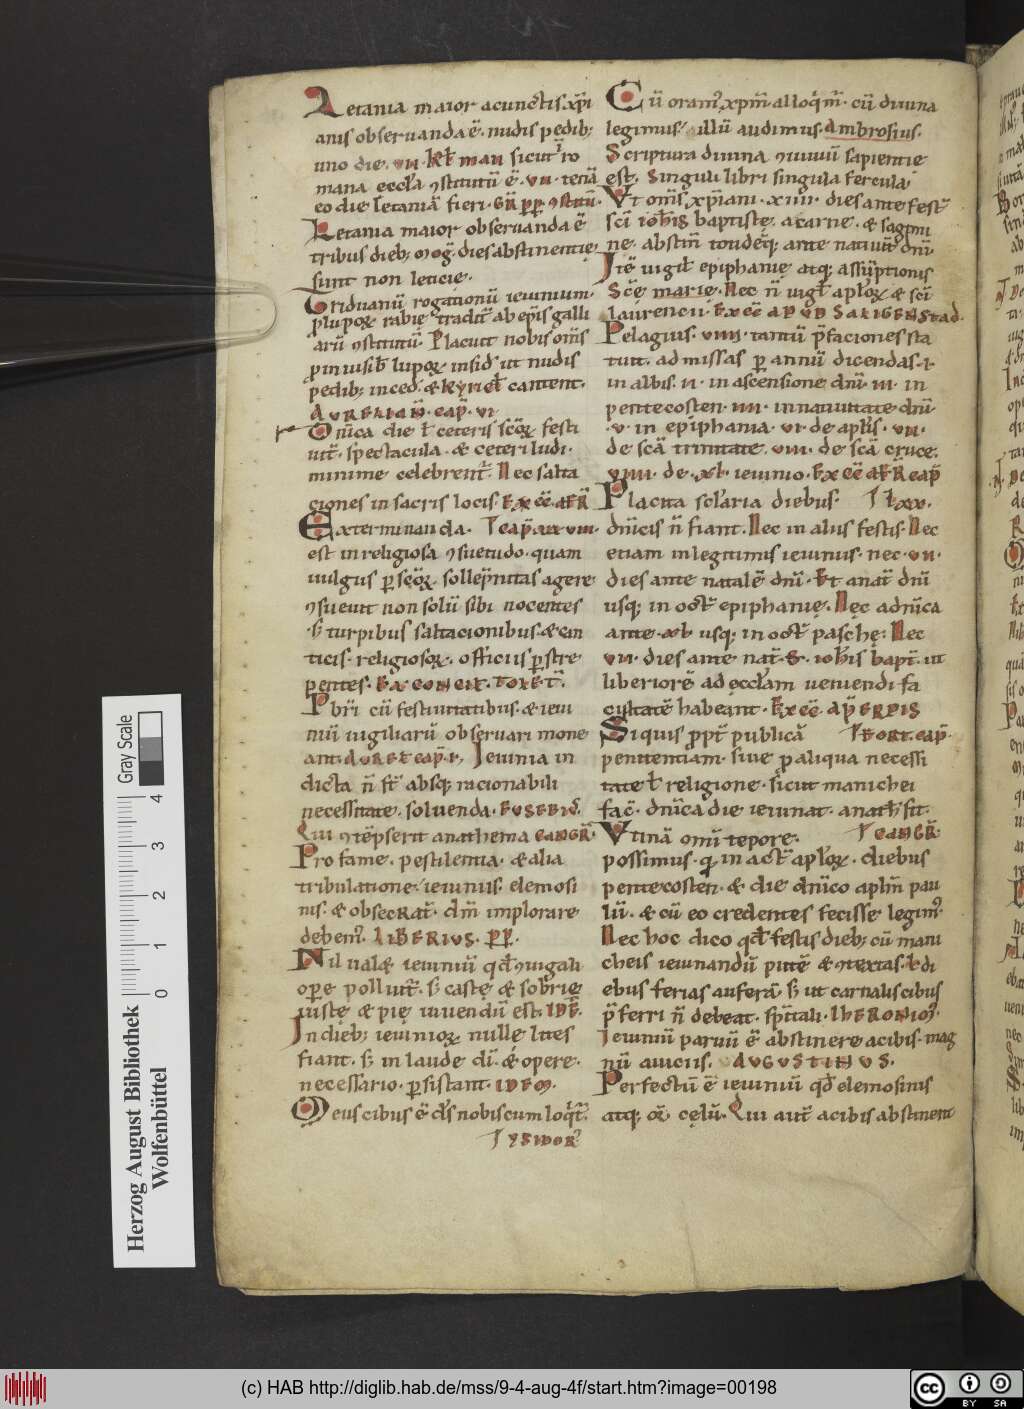 Letania maior acunctis xp̄i
anis obseruanda ē. nudis pedib;
uno die. VII. kl̄ mau sicut ro
mana eccl̄a ꝯstitutū ē. VII. tenā
eo die letaniā fieri. GR̄ PP. ꝯstitū.
Letania maior obseruanda ē
tribus dieb; dies abstinentię
sunt non leticie.
Triduanū rogationū ieiunium.
ꝓ lupoꝝ rabie tradit̄ ab ep̄is galli
arū ꝯstitutū. Placuit nobis om̄s
ꝓ inuisib̄ lupoꝝ insid ut nudis
pedib; inced. & kyriel̄ cantent.
AURELIAN̄. cap̄. VI
Dn̄ica die l̄ ceteris sc̄oꝝ festi
uit̄. spectacula. & ceteri ludi.
minime celebrent̄. Nec salta
ciones in sacris locis. EX Cc̄ AFR̄
Exterminanda. cap̄. XXVIII.
est inreligiosa ꝯsuetudo. quam
uulgus ꝑ sc̄oꝝ. sollēpnitas agere
ꝯsueuit non solū sibi nocentes
s; turpibus saltacionibus. & can
ticis. religiosoꝝ. officiis ꝑstre
pentes. EX CONCIL. TOLET̄.
Pbr̄i cū festiuitatibus. & ieiu
niū uigiliarū obseruari mone
ant. AURET CAP̄. I. Ieiunia in
dicta n̄ st̄ absq; racionabili
necessitate. soluenda. EUSEBIꝰ.
Qui ꝯtēpserit anathema CANGR̄.
Pro fame. pestilentia. & alia
tribulatione. ieiuniis. elemosi
nis. & obsecrat̄. dm̄ implorare
debemꝰ. LIBERIUS. PP̄.
Nil ualꝫ ieiuniū qd̄ ꝯiugali
ope polluit̄. s; castę & sobrię
iustę & pię uiuendū est. IDĒ.
In dieb; ieiunioꝝ nullę lites
fiant. s; in laude dī. & opere.
necessario. ꝑsistant. IDEM.
Meus cibus ē ds̄ nobiscum loqͥt̄.
YSIDOR̄
Cū oramꝰ xp̄m alloqͥm̄. cū diuina
legimus illū audimus. Ambrosius.
Scriptura diuina ꝯuiuiū sapientię
est. Singuli libri singula fercula
Vt om̄s xp̄iani. XIIII. dies ante fest̄
sc̄i ioh̄is baptiste. a carne. & sagimi
ne. abstin̄ tondēq; ante natiuit̄ dn̄i
Itē uigil̄ epiphanię atq; assūptionis
Sc̄e marię. Nec n̄ uigl̄ apl̄oꝝ & sc̄i
laurencii. EX Cc̄ APUD SALIGENSTad.
Pelagius. VIIII. tantū p̄faciones sta
tuit. ad missas ꝑ annū dicendas. I.
in albis. II. in ascensione dn̄i. III. in
pentecosten. IIII. in natiuitate dn̄i.
V. in epiphania. VI. de apl̄is. VII.
de scā trinitate. VIII. de scā cruce.
VIIII. de. XL ieiunio. EX Cc̄ AFR̄ cap̄
LXXV.
Placita sc̄laria diebus
dn̄icis n̄ fiant. Nec in aliis festis. Nec
etiam in legitimis ieiuniis. nec. VII.
dies ante natalē dn̄i. Et anat̄ dn̄i
usq; in oct̄ epiphanię. Nec a dn̄ica
ante. XL usq; in oct̄ paschę: Nec
VII. dies ante nat̄. S. ioh̄is bapt̄. ut
liberiorē ad eccl̄am ueniendi fa
cultatē habeant. EX Cc̄. AP̄ ERPIS
FORT. CAP̄.
Siquis ꝓpt̄ publicā
penitentiam. siue ꝓ aliqua necessi
tate l̄ religione. sicut manichei
fac̄. dn̄ica die ieiunat. anath̄ sit.
CANGR̄.
Vtinā omī tepore.
possimus. qͣ in act̄ apl̄oꝝ. diebus
pentecosten. & die dn̄ico aplm̄ pau
lū. & cū eo credentes fecisse legimꝰ.
Nec hoc dico qd̄ festis dieb; cū mani
cheis ieiunandū putē & ꝯtextas
ebus ferias auferā. s; ut carnalis cibus
p̄ferri n̄ debeat. sp̄itali. IHERONIMꝰ.
Ieiuniū paruū ē abstinere acibis. mag
nū auiciis. AUGUSTINUS.
Perfectū ē ieiuniū qd̄ elemosinis
atq; or̄ cęlū. Qui aut̄ acibis abstinent
Herzog August Bibliothek
Wolfenbüttel
Gray Scale
0 1 2 3 4
(c) HAB http://diglib.hab.de/mss/9-4-aug-4f/start.htm?image=00198
cc BY SA